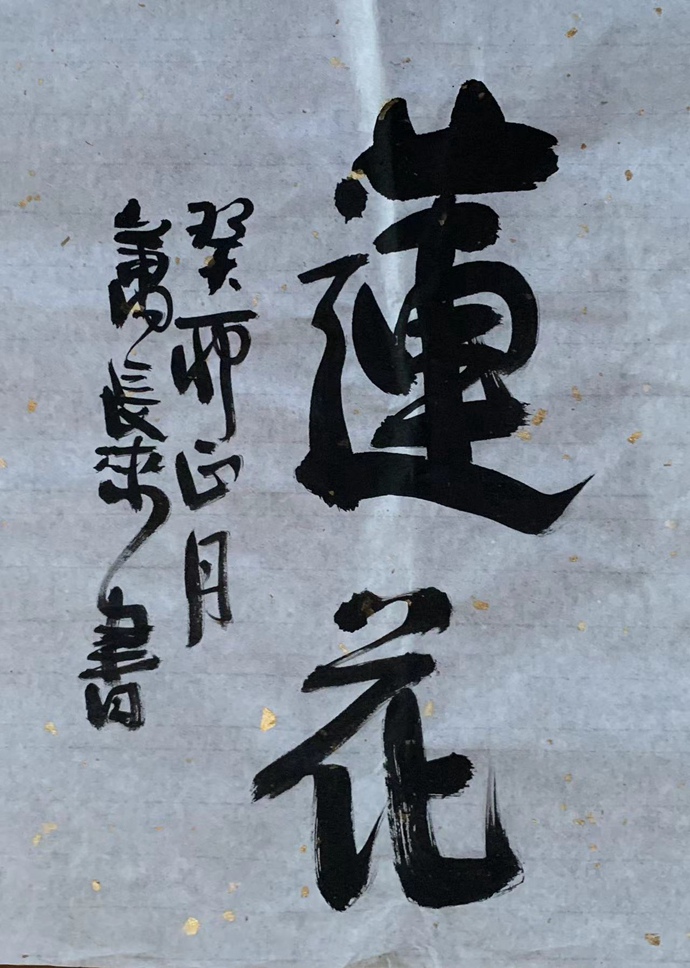 蓮花
癸卯正月
萬長來書